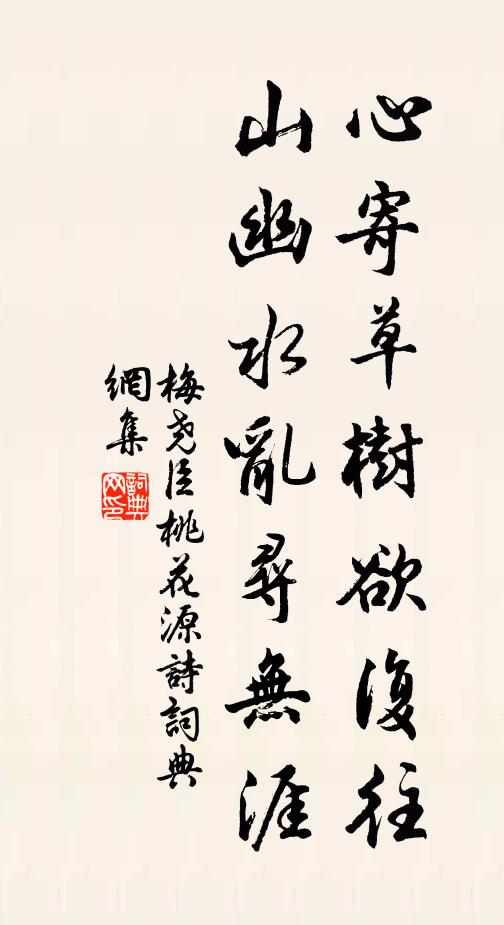 心寄草樹欲復往
山幽水亂尋無涯
梅堯臣桃花源詩詞典
網集
詞典
网印